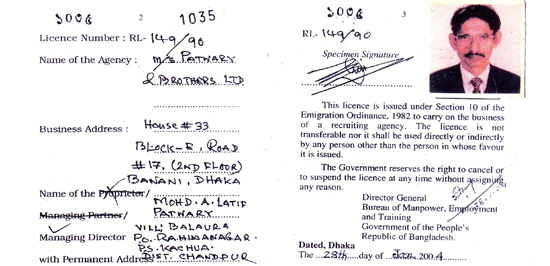 5006 2 1035
Licence Number : RL- 149/90
Name of the Agency : M/s PATWARY
& BROTHERS LTD
Business Address : House # 33
BLOCK-E, ROAD
# 17, (2ND FLOOR)
BANANI, DHAKA
Name of the Proprietor/
MOHD. A. LATIF
Managing Partner/ PATWARY
VILL: BALAURA
Managing Director P.O. RAHIMANAGAR.
P.S. KACHUA.
with Permanent Address DIST. CHANDPUR
5006 3
RL- 149/90
Specimen Signature
This licence is issued under Section 10 of the
Emigration Ordinance, 1982 to carry on the business
of a recruiting agency. The licence is not
transferable nor it shall be used directly or indirectly
by any person other than the person in whose favour
it is issued.
The Government reserves the right to cancel or
to suspend the licence at any time without assigning
any reason.
Director General
Bureau of Manpower, Employment
and Training
Government of the People's
Republic of Bangladesh.
Dated, Dhaka
The 28th day of Jan. 2004